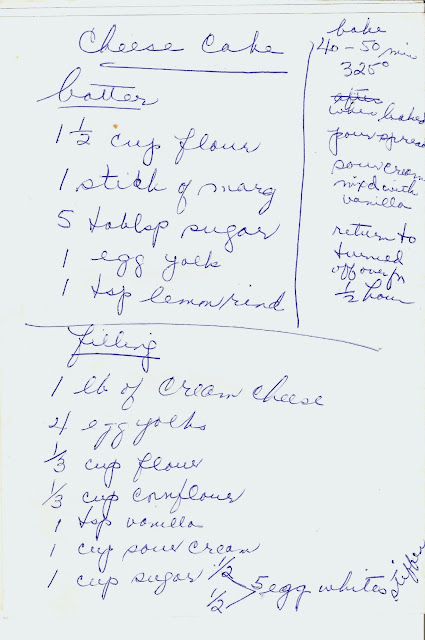 Cheese Cake
batter
1 1/2 cup flour
1 stick of marg
5 tablsp sugar
1 egg yolk
1 tsp lemon rind
bake
40 - 50 min
325°
after
when baked
pour spread
sour cream
mixd with
vanilla
return to
turned
off oven for
1/2 hour
filling
1 lb of cream cheese
4 egg yolks
1/3 cup flour
1/3 cup cornflour
1 tsp vanilla
1 cup sour cream
1 cup sugar 1/2 1/2 5 egg whites